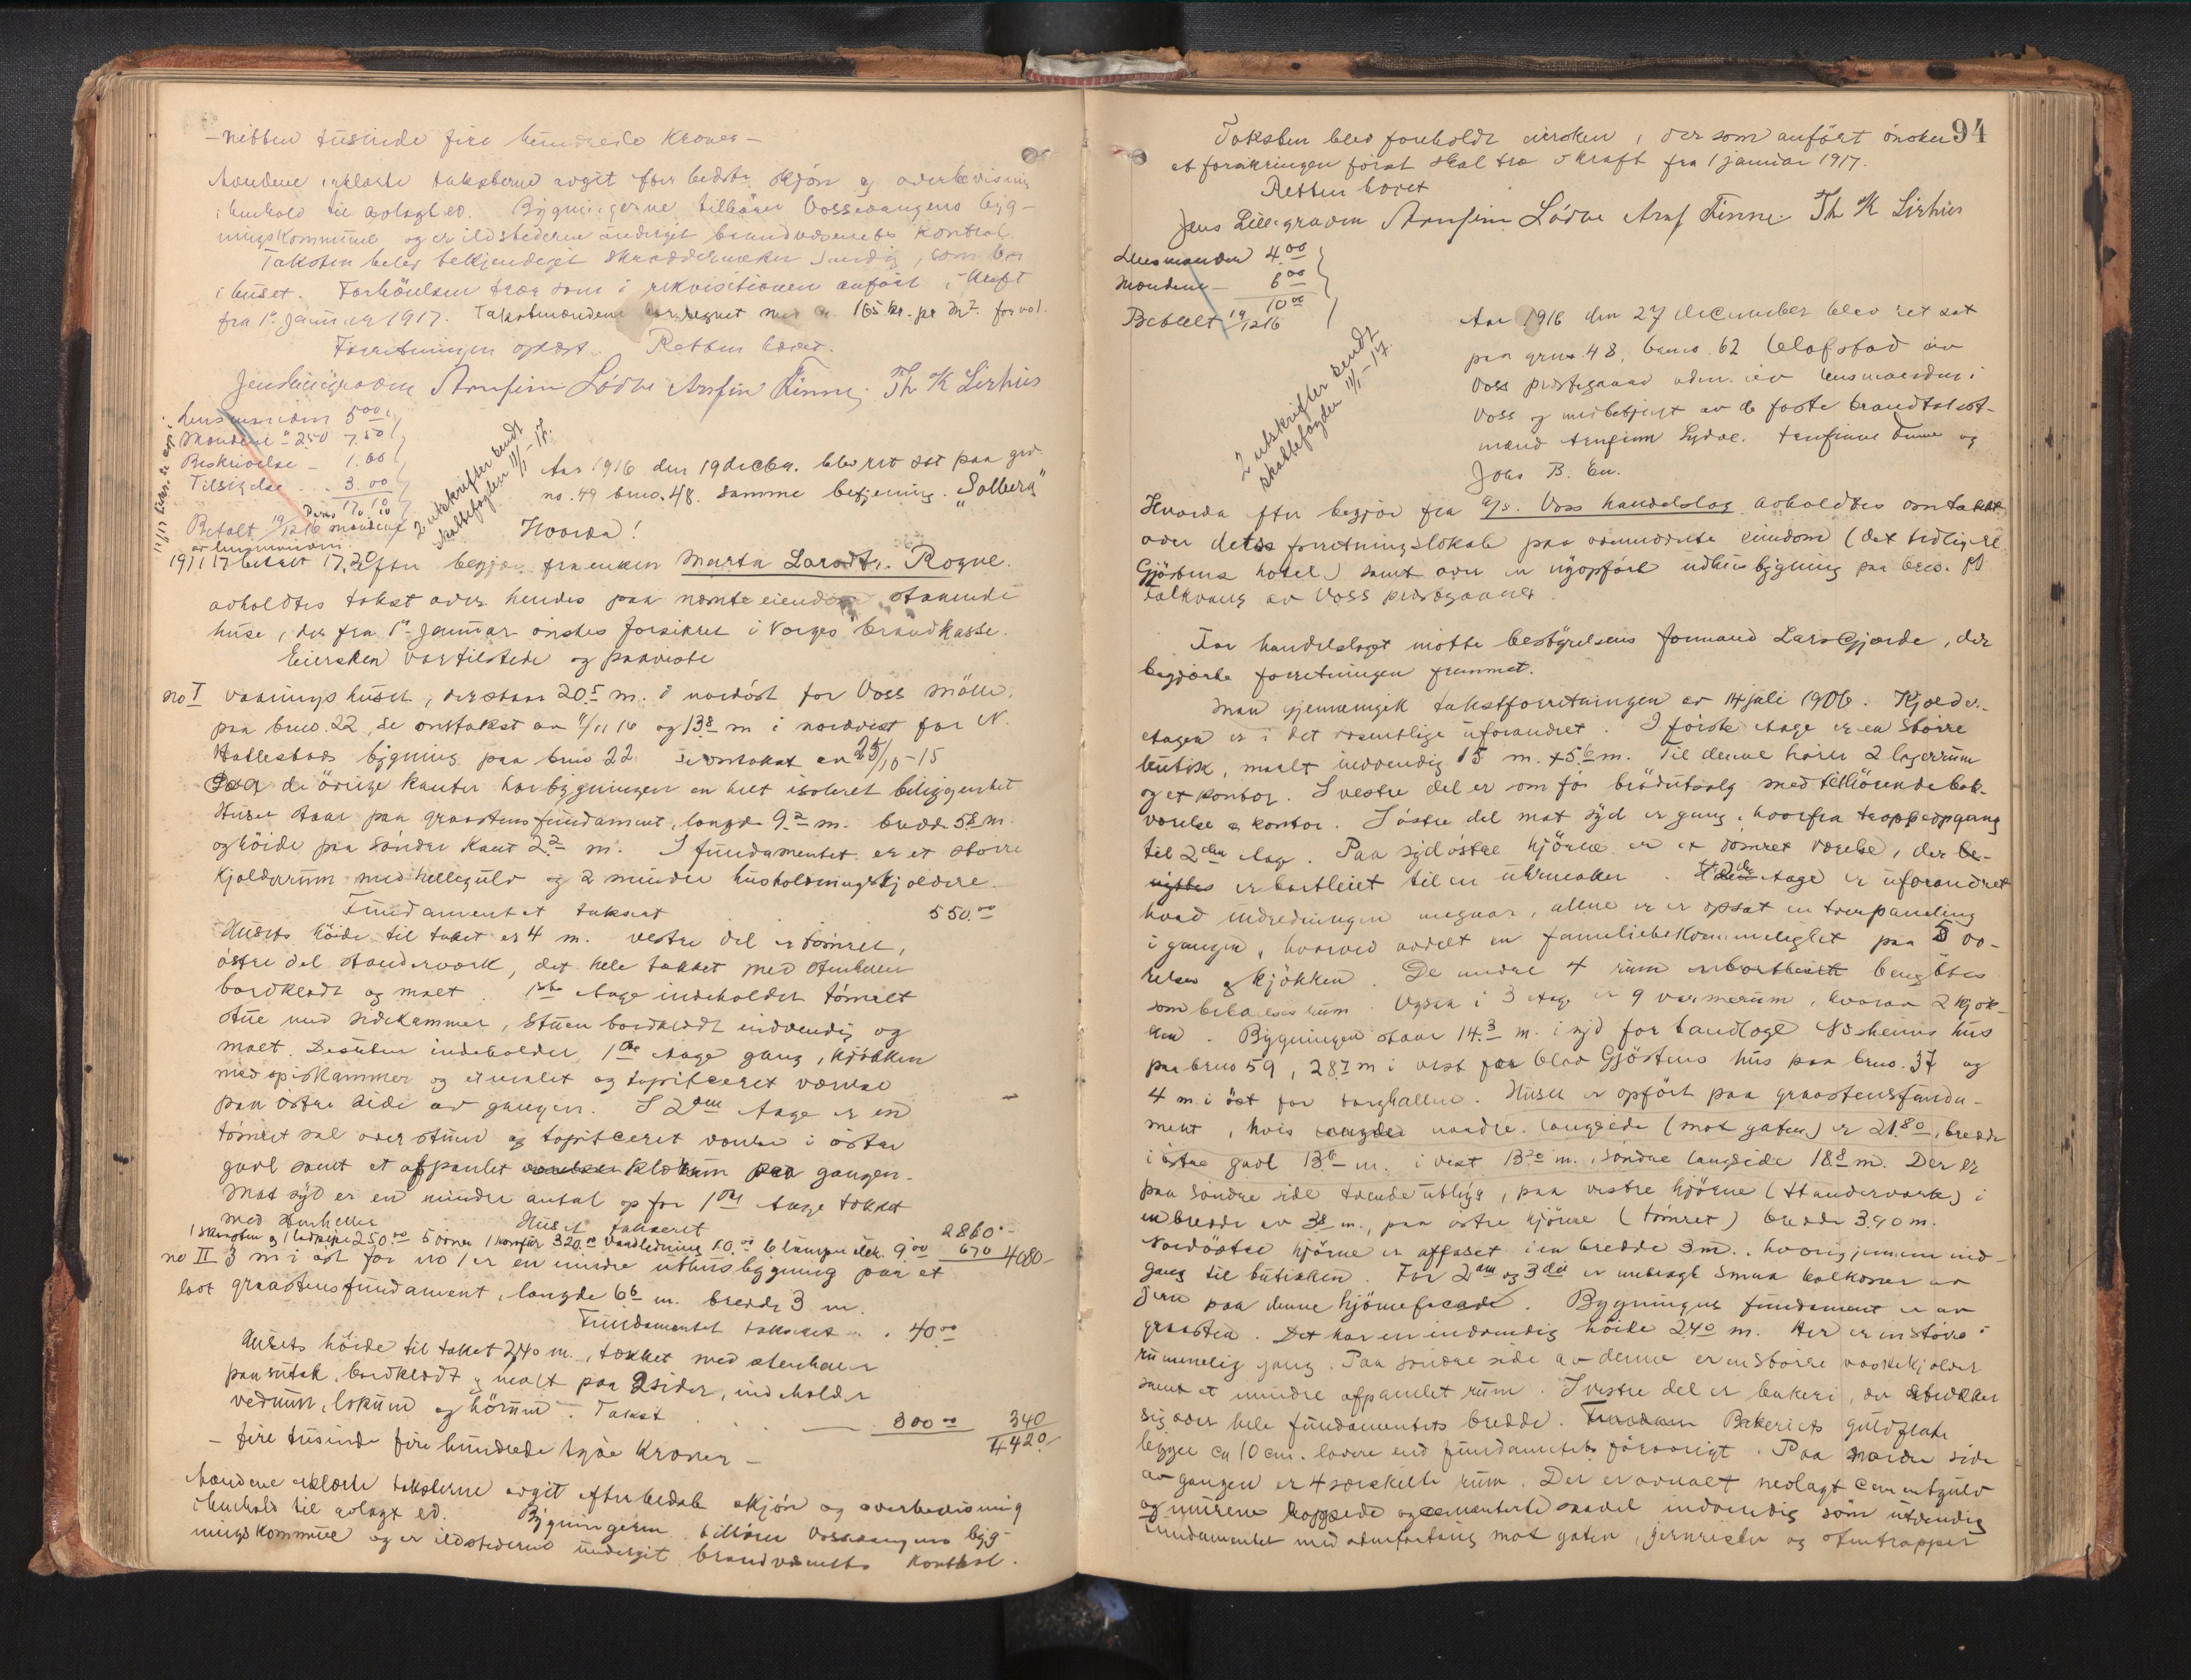 - nitten tusinde fire hundrede kroner -
Mændene erklærte taksterne avgit efter bedste skjøn og overbevisning
i henhold til avlagt ed. Bygningerne tilhører Vossevangens byg-
ningskommune og er ildstederne undergit brandvæsenets kontrol.
Taksten blev bekjendtgjort skræddermester, som bor
i huset. Forhøielsen træder som i rekvisitionen anført i kraft
fra 1ste januar 1917. Takstmændene har regnet med 165 kr. pr m². for vol.
Forretningen oplæst. Retten hævet.
Jens Lillegraven Arnfinn Lødve Arnfin Finne. Th K Lirhus
Lensmanden 5.00
Mændene à 2.50 7.50
Beskrivelse - 1.60
Tilsigelse . . 3.00
17.10
Betalt 19/12 16 mændene 10
av lensmanden.
2 utskrifter sendt
skattefogden 11/1-17.
Aar 1916 den 19 decbr. blev ret sat paa grd.
no. 49 brno. 48. samme betjening. "Solberg"
Hvorda!
19/1 17 betalt 17.30 efter begjær fra enken Marta Larsdtr. Rogne.
avholdtes takst over hendes paa nævnte eiendom staaende
huse, der fra 1ste januar ønskes forsikret i Norges brandkasse.
Eiersken var tilstede og paaviste
no I vaaningshuset, der staar 20.5 m. i nordøst for Voss mølle,
paa brno. 22, se omtakst av 4/11 16 og 13.8 m i nordvest for N.
Hallestads bygning paa brno 22 se omtakst av 25/10-15
Paa de øvrige kanter har bygningen en helt isoleret beliggenhet
Huset staar paa graastensfundament, længde 9.2 m. bredde 5.8 m.
og høide paa søndre kant 2.2 m. I fundamentet er et større
kjelderrum med hellegulv og 2 mindre husholdningskjeldere.
Fundamentet taksert 550.00
Husets høide til taket er 4 m. vestre del er tømret,
østre del standerverk, det hele tækket med stenheller
bordklædt og malt. 1ste etage indeholder tømret
stue med sidekammer, stuen bordklædt indvendig og
malt. Desuten indeholder 1ste etage gang, kjøkken
med spiskammer og et malet og tapitceret værelse
paa østre side av gangen. I 2den etage er en
tømret sal over stuen og tapitceret værelse i østre
gavl samt et afpanlet klærum paa gangen.
Mot syd er en mindre antal op for 1ste etage tækket
med stenheller Huset takseret 2860.-
1 skorsten og 1 ledpipe 250.00 5 ovner 1 komfyr 320.00 vandledning 10.00 6 lamper elek. 9.00 670 4080-
no II 3 m i øst for no 1 er en mindre uthusbygning paa et
løst graastensfundament, længde 6.6 m. bredde 3 m.
Fundamentet takseret . . 40.00
Husets høide til taket 2,40 m., tækket med stenheller
paa sutak, bordklædt og malt paa 2 sider, indeholder
vedrum, lokum og hørum. Takst 300.00 340
4420
- fire tusinde fire hundrede tyve kroner -
Mændene erklærte taksterne avgit efter bedste skjøn og overbevisning
i henhold til avlagt ed. Bygningerne tilhører Vossevangens byg-
ningskommune og er ildstederne undergit brandvæsenets kontrol.
94
Taksten blev foreholdt eiersken, der som anført ønsker
at forsikringen først skal træ i kraft fra 1 januar 1917.
Retten hævet
Jens Lillegraven Arnfinn Lødve Arnf Finne. Th K Lirhus
Lensmanden 4.00
Mændene - 6.00
10.00
Betalt 19/12 16
2 utskrifter sendt
skattefogden 11/1-17.
Aar 1916 den 27 december blev ret sat
paa grno. 48, brno. 62 Olafstad av
Voss prestegaard adm. av lensmanden i
Voss og med betjent av de faste brandtakst-
mænd Arnfinn Lydve. Arnfinne Finne og
Johs B. En.
Hvorda efter begjær fra A/s. Voss handelslag avholdtes omtakst
over dets forretningslokale paa ovennævnte eiendom (det tidligere
Gjøsteins hotel) samt over en nyopført udhusbygning paa brno.
av Voss prestegaard.
For handelslaget møtte bestyrelsens formand Lars Gjerde, der
begjærte forretningen fremmet.
Man gjennemgik takstforretningen av 14 juli 1906. Kjelder-
etagen er i det væsentlige uforandret. I første etage er en større
butik, maalt indvendig 15 m. x 5.6 m. Til denne hører 2 lagerrum
og et kontor. I vestre del er som før brødutsalg med tilhørende bak-
værelse & kontor. I østre del mot syd er gang, hvorfra trappeopgang
til 2den etag. Paa sydøstre hjørne er et tømret værelse, der be-
nyttes er bortleiet til en uhrmaker. 2den etage er uforandret
hvad indredningen angaar, alene er opsat en tverpaneling
i gangen, hvorved avdelt en familiebekvemmelighet paa 5 væ-
relser og kjøkken. De andre 4 rum er bortleiet benyttes
som beboelsesrum. Ogsaa i 3 etage er 9 varmerum, hvorav 2 kjøk-
ken. Bygningen staar 14.3 m. i syd for tandlæge Nesheims hus
paa brno 59, 28.7 m i vest for Olav Gjøsteins hus paa brno. 37 og
4 m. i øst for torghallen. Huset er opført paa graastensfunda-
ment, hvis længde nordre langside (mot gaten) er 21.80, bredde
i østre gavl 13.6 m. i vest 13.20 m., søndre langside 18.8 m. Der er
paa søndre side tvende utbygg, paa vestre hjørne (standerverk) i
en bredde av 3.8 m., paa østre hjørne (tømret) bredde 3.90 m.
Nordøstre hjørne er affaset i en bredde 3 m., hvorigjennem ind-
gang til butikken. For 2den og 3die er anbragt smaa balkoner av
jern paa denne hjørnefacade. Bygningens fundament er av
graasten. Det har en indvendig høide 2.40 m. Her er en større
rummelig gang. Paa søndre side av denne er en større vaskekjelder
samt et mindre afpanlet rum. I vestre del er bakeri, der strækker
sig over hele fundamentets bredde. Bakeriets gulvflate
ligger ca 10 cm. lavere end fundamentets forøvrigt. Paa nordre side
av gangen er 4 særskilte rum. Der er overalt nedlagt cementgulv
og murene kappede og cementerte saavel indvendig som utvendig
Fundamentet med mot gaten, jernrister og stentrapper